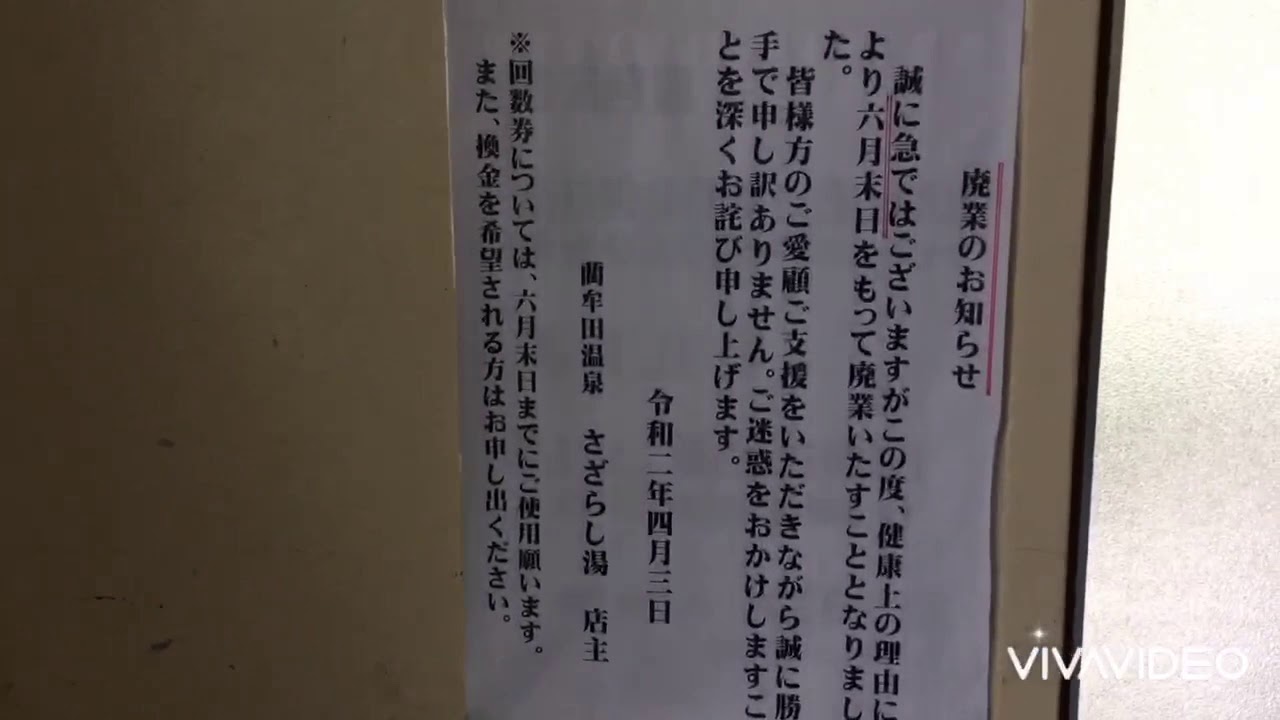 廃業のお知らせ
誠に急ではございますがこの度、健康上の理由に
より六月末日をもって廃業いたすこととなりまし
た。
皆様方のご愛顧ご支援をいただきながら誠に勝
手で申し訳ありません。ご迷惑をおかけしますこ
とを深くお詫び申し上げます。
令和二年四月三日
藺牟田温泉 さざらし湯 店主
※回数券については、六月末日までにご使用願います。
また、換金を希望される方はお申し出ください。
VIVAVIDEO